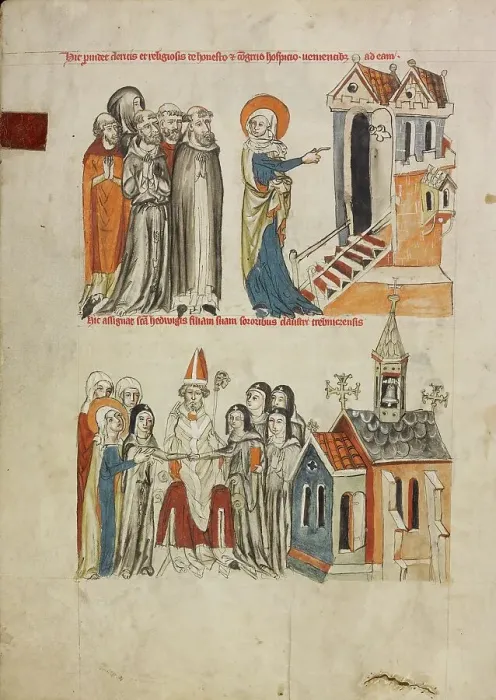 Hic prouidet clericis et religiosis de honesto & cōgruo hospicio uenientibꝫ ad eam·
Hic assignat scā hedwigis filiam suam sororibus claustri trebniczensis